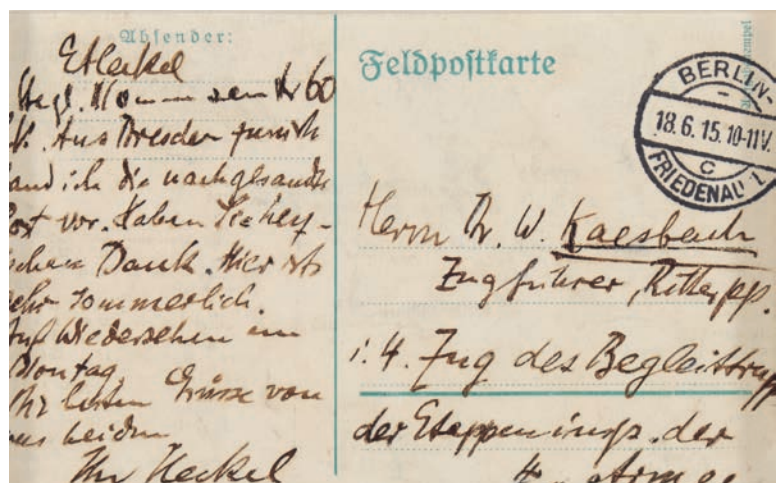 Absender:
EHeckel
Stegl. Mommsenstr 60
Aus Dresden zurück
fand ich die nachgesandte
Post vor. Haben Sie herz-
ischen Dank. Hier ists
sehr sommerlich.
Auf Wiedersehen am
Montag
Ihr besten Grüsse von
uns beiden
Ihr Heckel
Feldpostkarte
BERLIN-
18.6.15.10-11V.
C
FRIEDENAU 1.
Herrn Dr. W. Kaesbach
Zugführer,
i. 4. Zug des Begleittrupp
der Etappeninsp. der
4. Armee